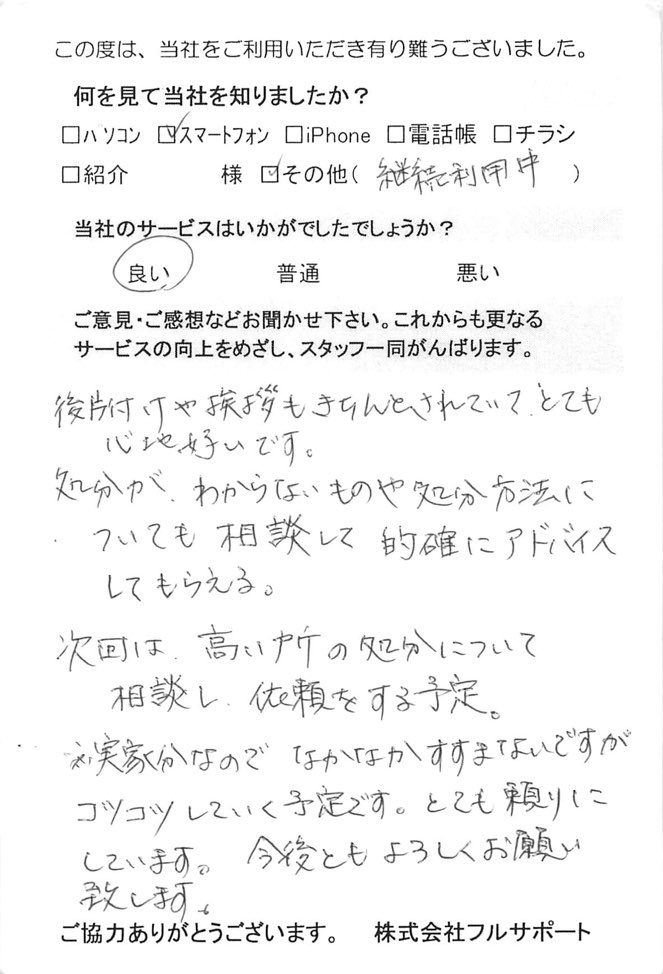 この度は、当社をご利用いただき有り難うございました。
何を見て当社を知りましたか？
□パソコン ☑スマートフォン □iPhone □電話帳 □チラシ
□紹介 様 ☑その他( 継続利用中 )
当社のサービスはいかがでしたでしょうか？
良い 普通 悪い
ご意見・ご感想などお聞かせ下さい。これからも更なる
サービスの向上をめざし、スタッフ一同がんばります。
後片付けや挨拶もきちんとされていて、とても
心地好いです。
処分が、わからないものや処分方法に
ついても相談して的確にアドバイス
してもらえる。
次回は、高い所の処分について
相談し、依頼をする予定。
※実家分なので なかなかすすまないですが
コツコツしていく予定です。とても頼りに
しています。今後ともよろしくお願い
致します。
ご協力ありがとうございます。 株式会社フルサポート